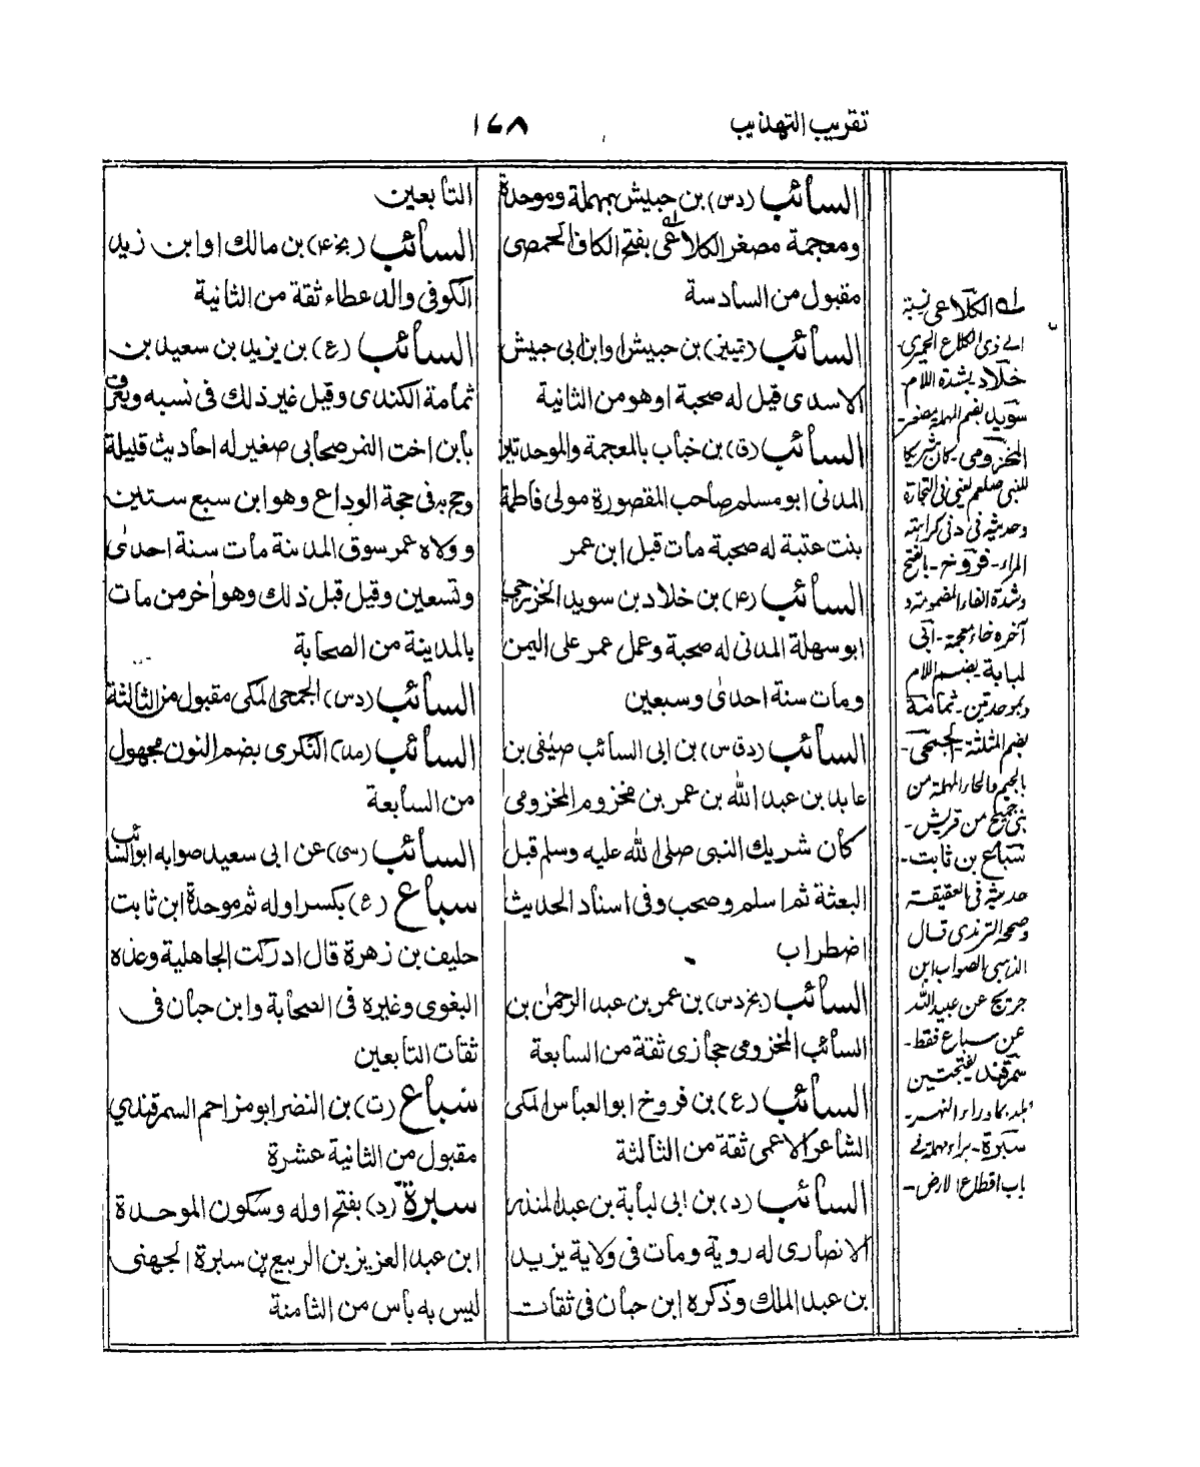 تقريب التهذيب
١٤٨
السائب (دس) بن حبيش بمهملة وموحدة
ومعجمة مصغر الكلاعى بفتح الكاف الحمصى
مقبول من السادسة
السائب (تمييز) بن حبيش او ابن ابى حبيش
الاسدى قيل له صحبة اوهو من الثانية
السائب (ق) بن خباب بالمعجمة والموحدتين
المدنى ابو مسلم صاحب المقصورة مولى فاطمة
بنت عتبة له صحبة مات قبل ابن عمر
السائب (عم) بن خلاد بن سويد الخزرجى
ابو سهلة المدنى له صحبة وعمل عمر على اليمن
ومات سنة احدى وسبعين
السائب (دق س) بن ابى السائب صيفى بن
عابد بن عبد الله بن عمر بن مخزوم المخزومى
كان شريك النبى صلى الله عليه وسلم قبل
البعثة ثم اسلم وصحب وفى اسناد الحديث
اضطراب
السائب (بخ دس) بن عمر بن عبد الرحمن بن
السائب المخزومى حجازى ثقة من السابعة
السائب (ع) بن فروخ ابو العباس المكى
الشاعر الاعمى ثقة من الثالثة
السائب (د) بن ابى لبابة بن عبد المنذر
الانصارى له روية ومات فى ولاية يزيد
بن عبد الملك وذكره ابن حبان فى ثقات
التابعين
السائب (بخ عم) بن مالك او ابن زيد
الكوفى والد عطاء ثقة من الثانية
السائب (ع) بن يزيد بن سعيد بن
ثمامة الكندى وقيل غير ذلك فى نسبه ويعرف
بابن اخت النمر صحابى صغير له احاديث قليلة
وحج به فى حجة الوداع وهو ابن سبع ستين
وولاه عمر سوق المدينة مات سنة احدى
وتسعين وقيل قبل ذلك وهو اخر من مات
بالمدينة من الصحابة
السائب (دس) الجمحى المكى مقبول من الثالثة
السائب (مد) النكرى بضم النون مجهول
من السابعة
السائب (سى) عن ابى سعيد صوابه ابو السائب
سباع (ع) بكسر اوله ثم موحدة ابن ثابت
حليف بن زهرة قال ادركت الجاهلية وعده
البغوى وغيره فى الصحابة وابن حبان فى
ثقات التابعين
سباع (ت) بن النضر ابو مزاحم السمرقندى
مقبول من الثانية عشرة
سبرة (د) بفتح اوله وسكون الموحدة
ابن عبد العزيز بن الربيع بن سبرة الجهنى
ليس به باس من الثامنة
له الكلاعى نسبة
الى ذى الكلاع الحميرى-
خلاد بشدة اللام
سويد بضم المهملة مصغر-
المخزومى كان شريكا
للنبى صلعم يعنى فى التجارة
وحديثه فى
المراء- فروخ- بالفتح
وشدة الفاء المضمومة و
آخره خاء معجمة- ابى
لبابة بضم اللام
وبموحدتين- ثمامة
بضم المثلثة- الجمحى-
بالجيم والحاء المهملة من
بنى جميح من قريش-
سباع بن ثابت-
حديثه فى العقيقة
وصححه الترمذى قال
الذهبى الصواب ابن
جريج عن عبيد الله
عن سباع فقط-
سمرقند بفتحتين
بلد بماوراء النهر-
سبرة- براء مهملة فى
باب اقطاع الارض-